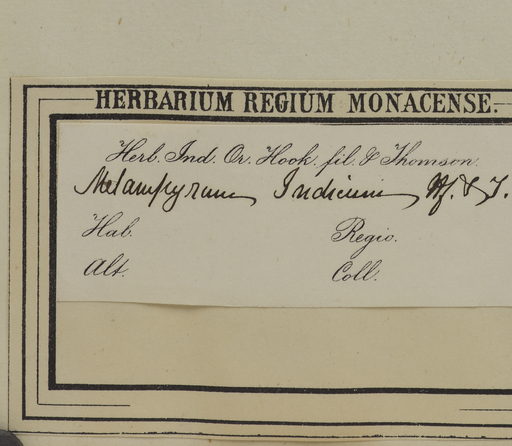 HERBARIUM REGIUM MONACENSE.
Herb. Ind. Or. Hook. fil. & Thomson.
Melampyrum Indicum Hf. & T.
Hab. Regio.
Alt. Coll.